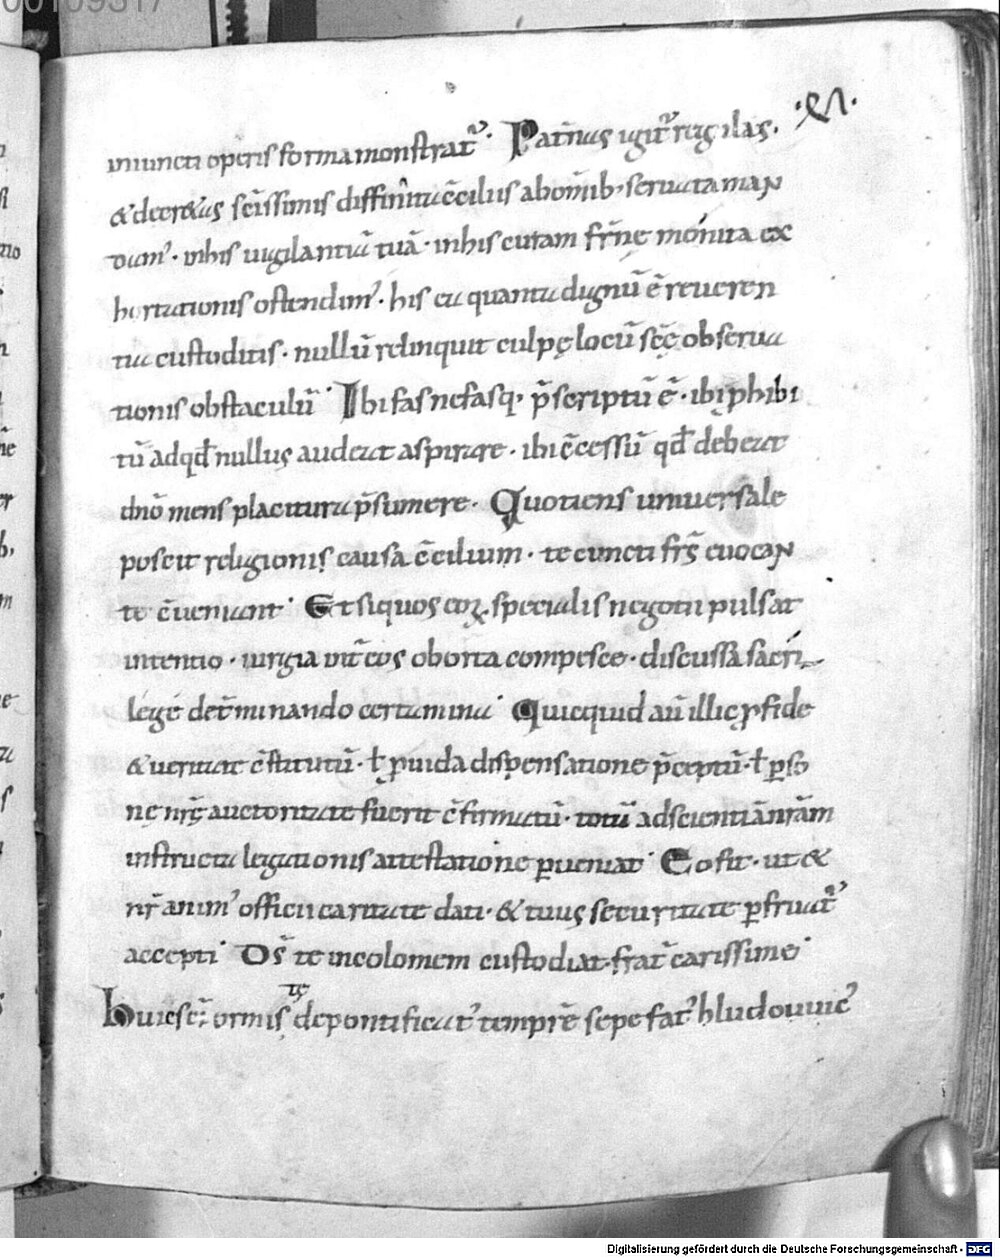 00109317
·XVI·
iniuncti operis forma monstrat᷑. Pat̄nus igit᷑ regulas.
& decr&us sc̄issimis diffinitu c̄ciliis ab om̄ib; seruata man
dam᷒. in his uigilantiā tuā. in his curam fr̄nę monita ex
hortationis ostendim᷒. his &quantu dignū ē reueren
tia custoditis. nullū relinquit culpę locū. sc̄ę obserua
tionis obstaculū. Ibi fas nefasq; p̄scriptū ē. ibi phibi
tū ad qd̄ nullus audeat aspirare. ibi c̄cessū qd̄ debeat
dn̄o mens placitura p̄sumere. Quotiens uniuersale
poscit religionis causa c̄cilium. te cuncti frs̄ euocan
te c̄ueniant. Et si quos eoꝝ specialis negotii pulsat
intentio. iurgia int̄ eos oborta compesce. discussa sacra
lege det̄minando certamina. Quicquid aū illic ꝓ fide
& ueritate c̄stitutū. ł ꝓuida dispensatione p̄ceptū. ł ꝑso
nę nrę̄ auctoritate fuerit c̄firmatū. totū ad scientiā nr̄am
instructa legationis attestatione ꝑueniat. Eo fit. ut &
nr̄ anim᷒ officii caritate dati. & tuus securitate ꝑfruat᷑
accepti. Ds̄ te incolomem custodiat frat̄ carissime.
Huiusc̄ ormisdę pontificat᷒ tempr̄e sepe fat᷒ hludouuic᷒
Digitalisierung gefördert durch die Deutsche Forschungsgemeinschaft - DFG